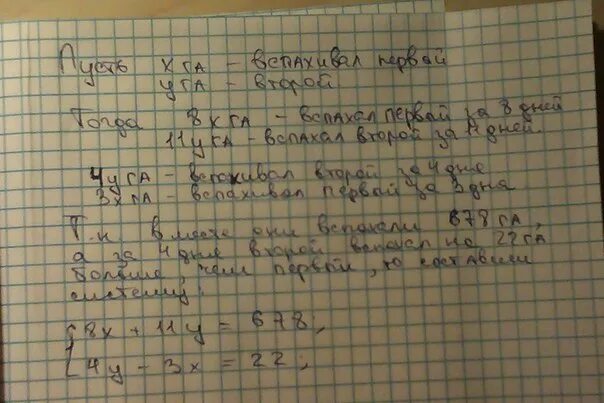 Пусть х га - вспахивал первой
у га - второй
Тогда 8х га - вспахал первой за 8 дней
11у га - вспахал второй за 11 дней
4у га - вспахивал второй за 4 дня
3х га - вспахивал первой за 3 дня
Т.к вместе они вспахали 678 га,
а за 4 дня второй вспахал на 22 га
больше, чем первой, то составим
систему:
{8х + 11у = 678;
4у - 3х = 22;